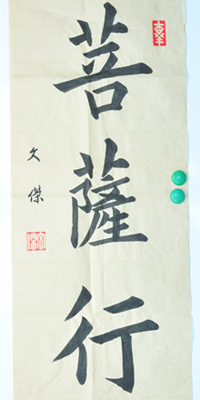 菩薩行
文傑